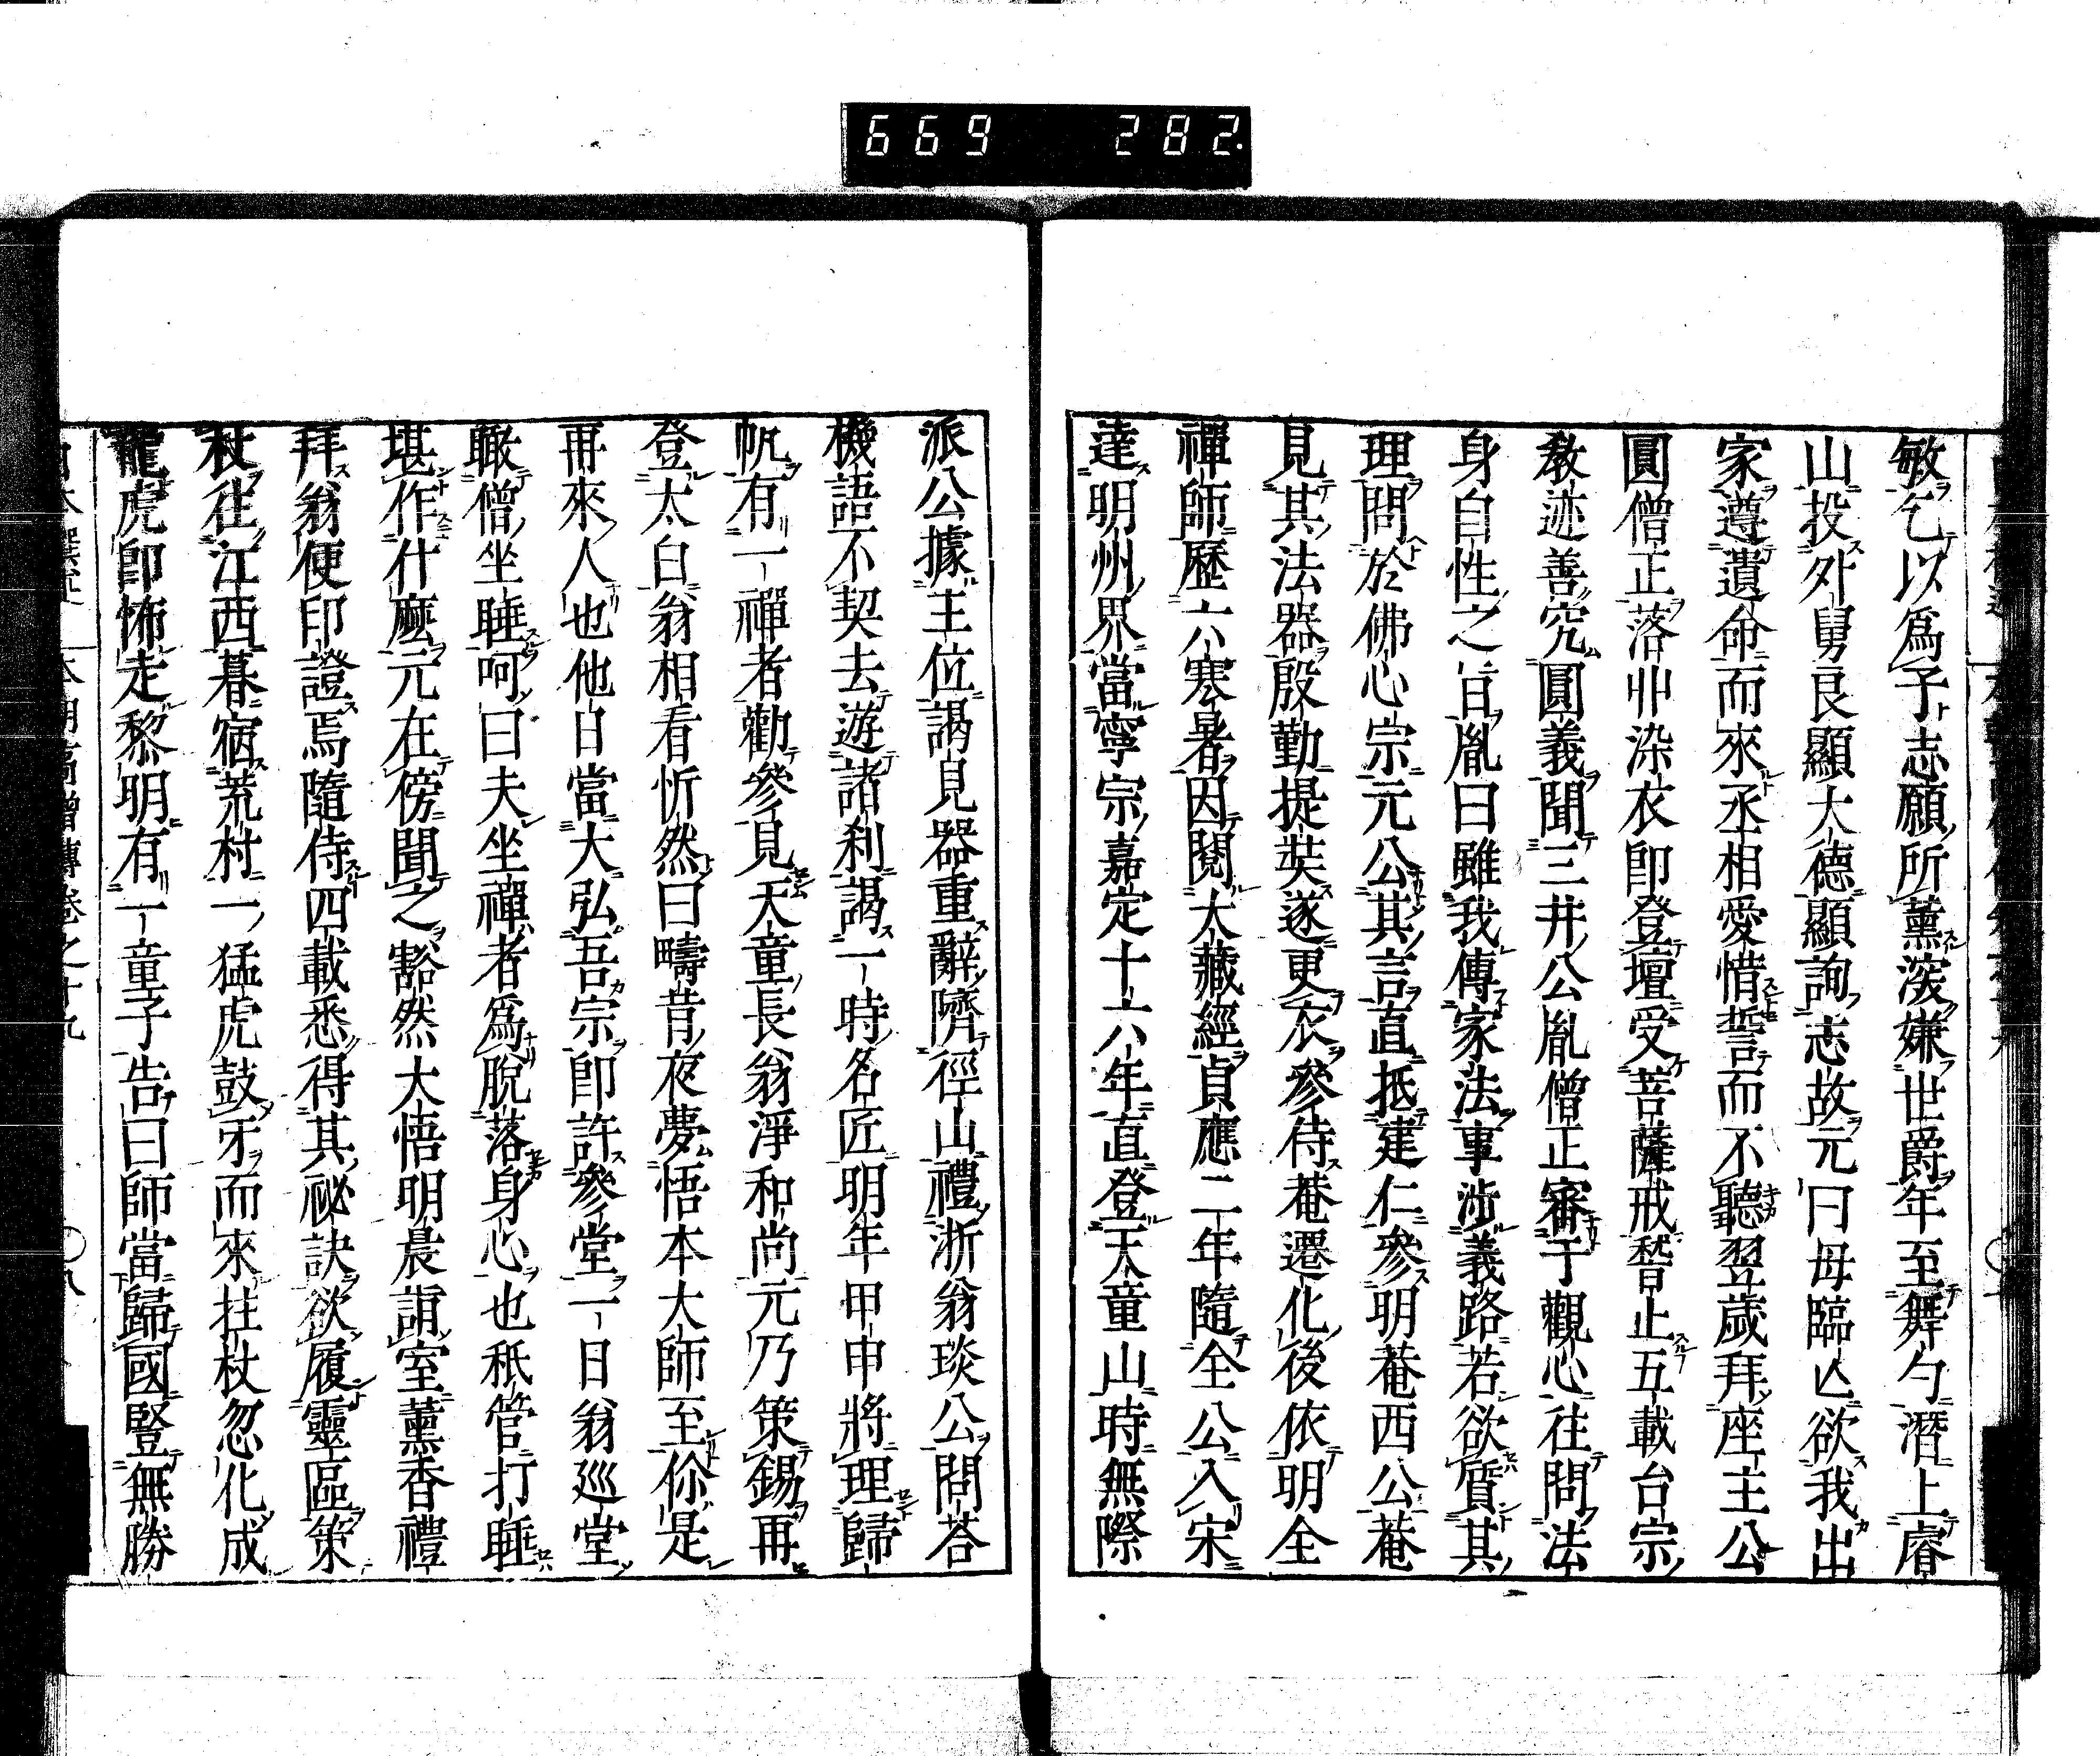 669 282.
敏乞以爲子志願所薰深嫌世爵年至舞勺潛上睿
山投外舅良顯大德顯詢志故元曰母臨亾欲我出
家遵遺命而來丞相愛惜誓而不聽翌歲拜座主公
圓僧正落丱染衣卽登壇受菩薩戒瞀止五載台宗
敎迹善究圓義聞三井公胤僧正審于觀心往問法
身自性之旨胤曰雖我傳家法事涉義路若欲質其
理問於佛心宗元公其言直抵建仁參明菴西公菴
見其法器殷勤提奘遂更衣參侍菴遷化後依明全
禪師歷六寒暑因閱大藏經貞應二年隨全公入宋
達明州界當寧宗嘉定十六年直登天童山時無際
派公據主位謁見器重辭隮徑山禮浙翁琰公問荅
機語不契去遊諸刹謁一時名匠明年甲申將理歸
帆有一禪者勸參見天童長翁淨和尚元乃策錫再
登太白翁相看忻然曰疇昔夜夢悟本大師至你是
再來人也他日當大弘吾宗卽許參堂一日翁巡堂
瞰僧坐睡呵曰夫坐禪者爲脫落身心也秖管打睡
堪作什麼元在傍聞之豁然大悟明晨詣室薰香禮
拜翁便印證焉隨侍四載悉得其祕訣欲履靈區策
杖往江西暮宿荒村一猛虎鼓牙而來拄杖忽化成
龍虎卽怖走黎明有一童子告曰師當歸國豎無勝
本朝高僧傳卷之十九 〇八